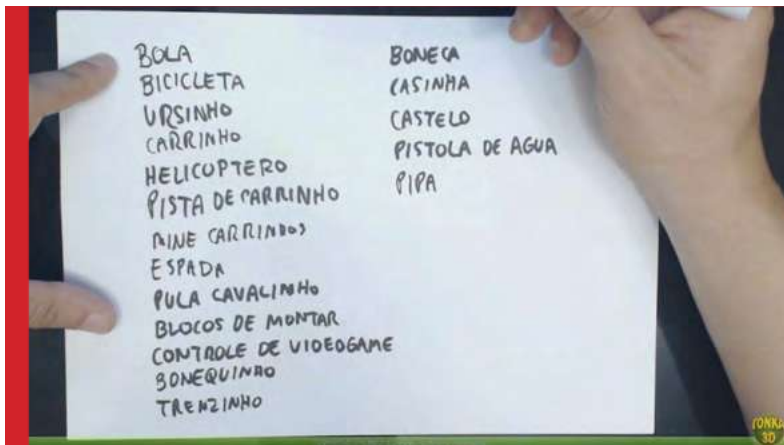 BOLA
BICICLETA
URSINHO
CARRINHO
HELICOPTERO
PISTA DE CARRINHO
MINE CARRINHOS
ESPADA
PULA CAVALINHO
BLOCOS DE MONTAR
CONTROLE DE VIDEOGAME
BONEQUINHO
TRENZINHO
BONECA
CASINHA
CASTELO
PISTOLA DE AGUA
PIPA